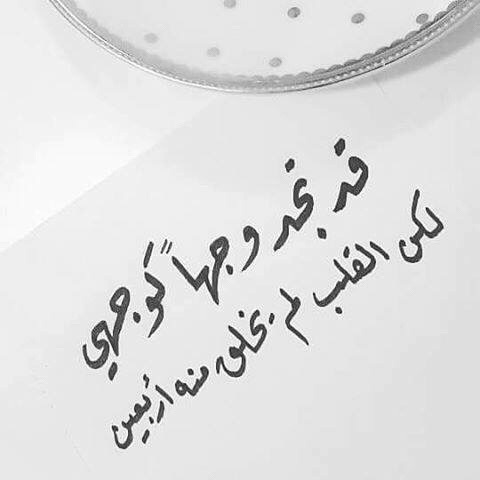 قد نجد وجهاً كوجهي
لكن القلب لم يخلق منه أربعين